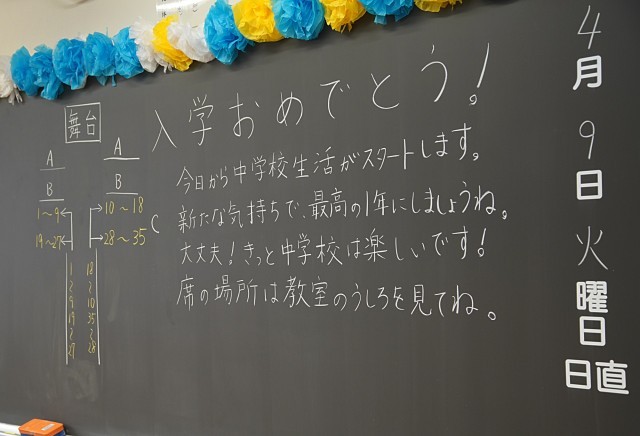 入学おめでとう！
今日から中学校生活がスタートします。
新たな気持ちで、最高の1年にしましょうね。
大丈夫！きっと中学校は楽しいです！
席の場所は教室のうしろを見てね。
舞台
A
B
1〜9
19〜27
A
B
10〜18
28〜35
C
1
〜
9
19
〜
27
18
〜
10
35
〜
28
4
月
9
日
火
曜
日
日直